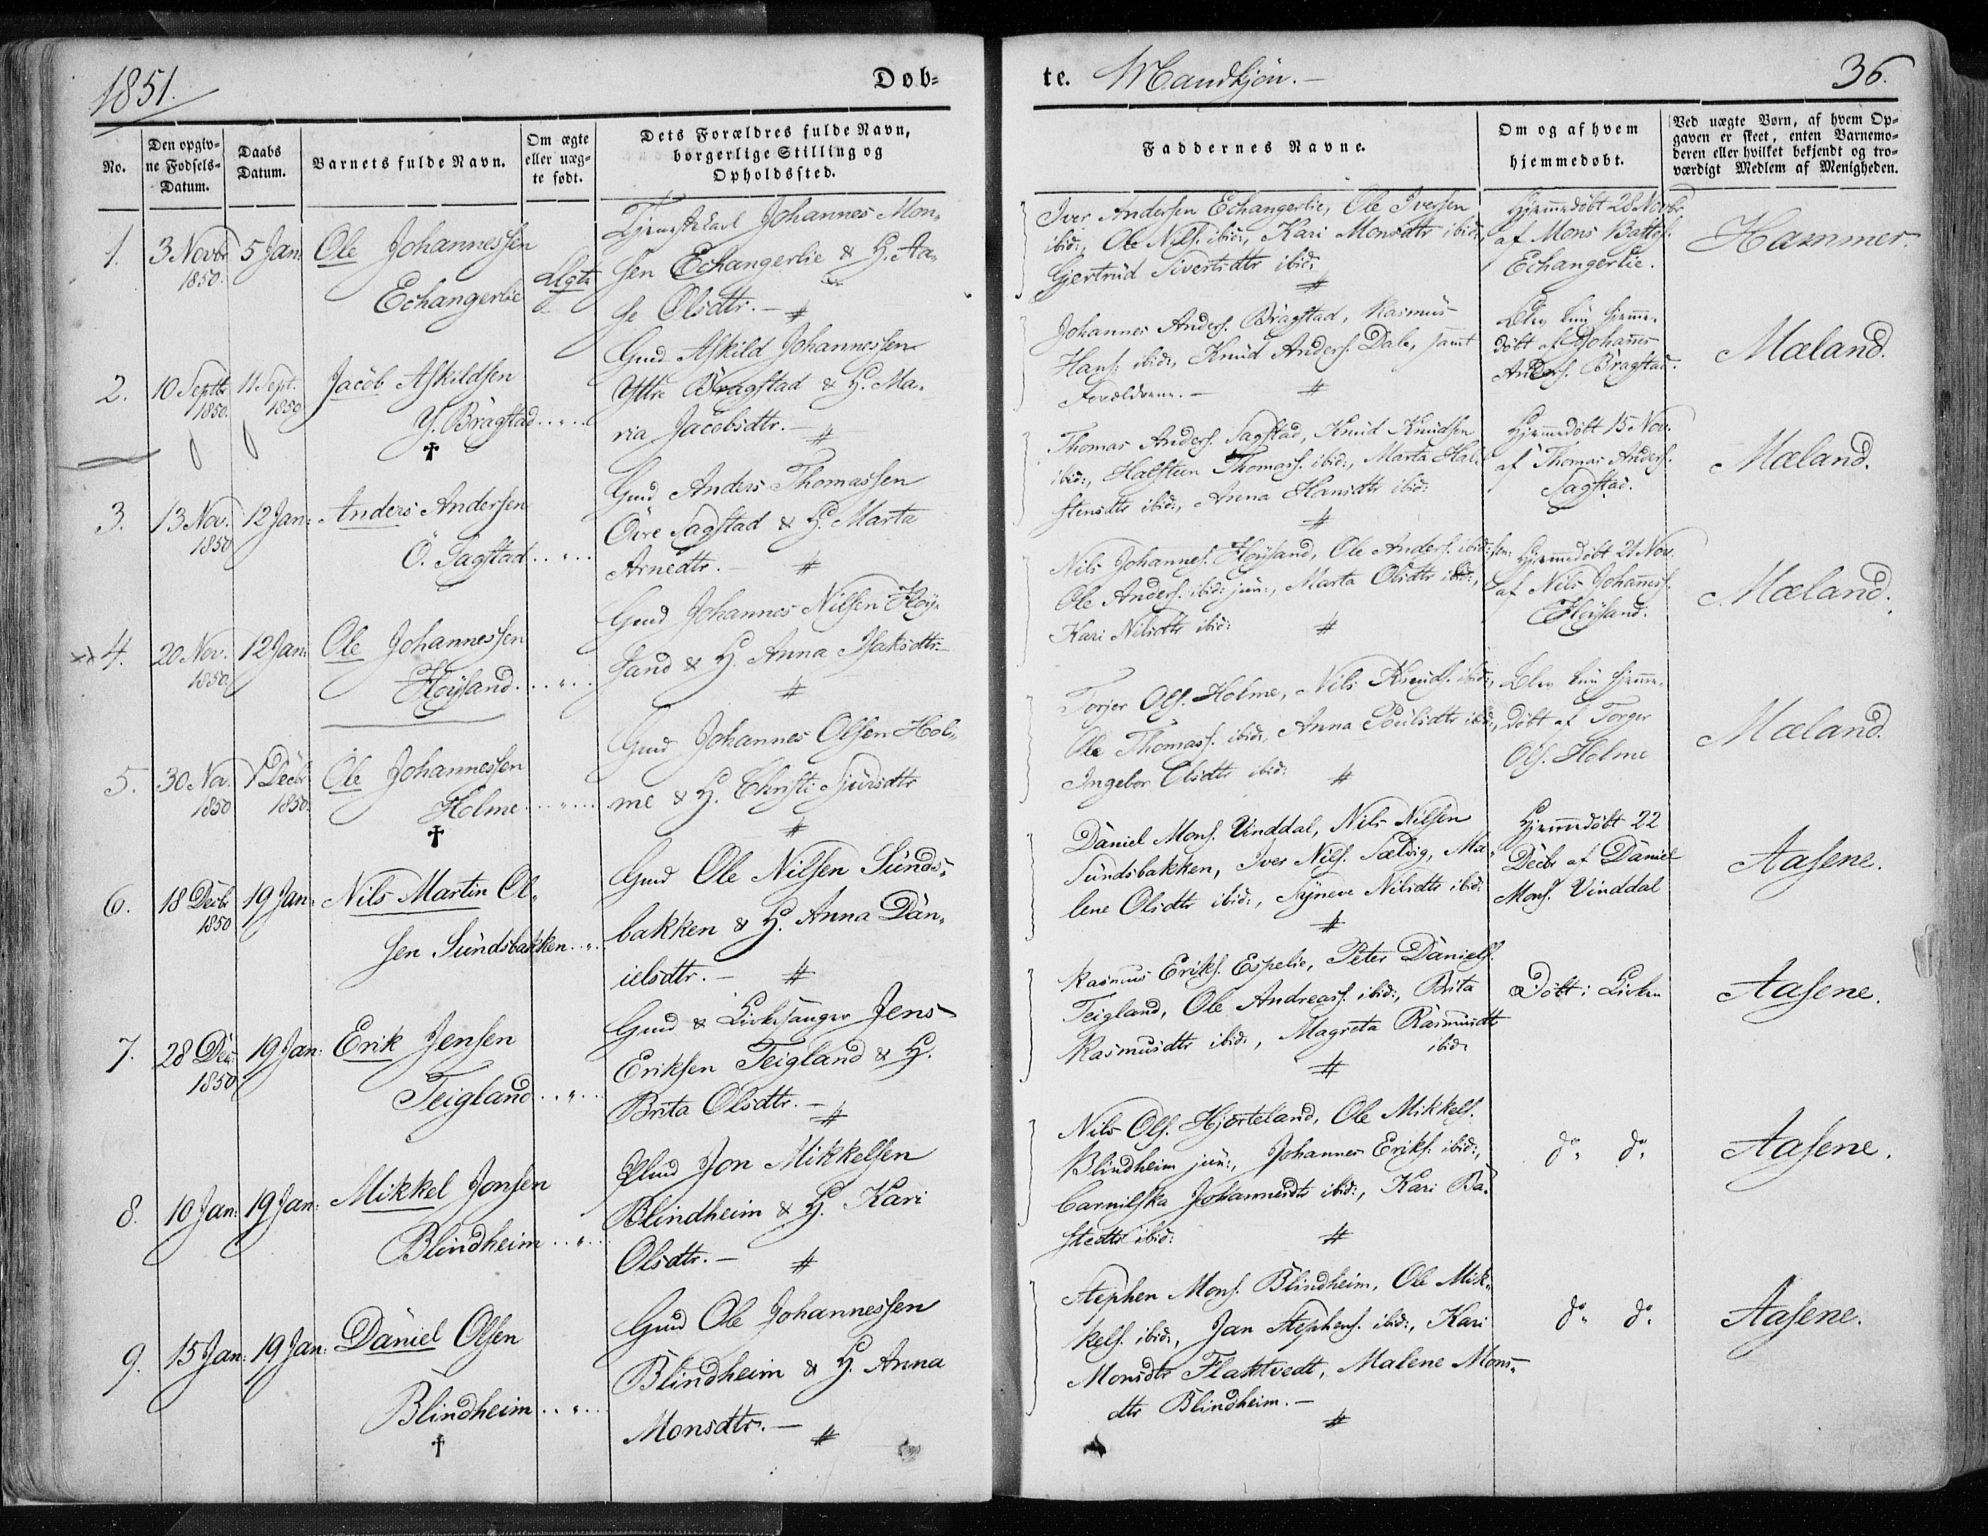 1851.
Døb=
te. Mandkjøn. –
36.
No.
Den opgiv=
ne Fødsels=
Datum.
Daabs
Datum.
Barnets fulde Navn.
Om ægte
eller uæg=
te født.
Dets Forældres fulde Navn,
borgerlige Stilling og
Opholdssted.
Faddernes Navne.
Om og af hvem
hjemmedøbt.
Ved uægte Børn, af hvem Op=
gaven er skeet, enten Barnemo=
deren eller hvilket bekjendt og tro=
værdigt Medlem af Menigheden.
1. 3 Novbr 5 Jan: Ole Johannessen
1850.
Echangerlie Ægte
Tjenestekarl Johannes Mon„
sen Echangerlie & H. Aa„
se Olsdtr. – #
Iver Andersen Echangerlie, Ole Iversen
ibid:, Ole Nils. ibid:, Kari Monsdtr ibid:,
Gjertrud Sivertsdtr ibid: #
Hjemmedøbt 28 Novbr
af Mons Battes.
Echangerlie.
Hammer.
2. 10 Septbr 11 Sept. Jacob Askildsen
1850. 1850
Y. Bragstad . . „ . .
†
Gmd Askild Johannessen
Yttre Bragstad & H. Ma„
ria Jacobsdtr. – #
Johannes Anders. Bragstad, Rasmus
Hans. ibid:, Knud Anders. Dale, samt
Forældrene. – #
Blev kun hjemme„
døbt af Johannes
Anders. Bragstad.
Mæland.
3. 13 Nov. 12 Jan: Anders Andersen
1850
Ö. Sagstad . . „ . .
Gmd Anders Thomassen
Övre Sagstad & H. Marta
Arnedtr. – #
Thomas Anders. Sagstad, Knud Knudsen
ibid:, Halsteen Thomass. ibid:, Marta Hal„
stensdtr ibid:, Anna Hansdtr ibid: #
Hjemmedøbt 15 Nov.
af Thomas Anders.
Sagstad.
Mæland.
4. 20 Nov. 12 Jan: Ole Johannessen
1850.
Høysand . . . „ . .
Gmd Johannes Nilsen Høy„
sand & H. Anna Isaksdtr. –
#
Nils Johannes. Høysand, Ole Anders. ibid: sen:
Ole Anders. ibid: jun:, Marta Olsdtr ibid:,
Kari Nilsdtr ibid: #
Hjemmedøbt 21 Nov.
af Nils Johaness.
Høysand.
Mæland.
5. 30 Nov. 1 Decbr Ole Johannessen
1850 1850.
Holme . . . „ . . .
†
Gmd Johannes Olsen Hol„
me & H. Christi Sjursdtr
#
Torjer Ols. Holme, Nils Knuds. ibid:,
Ole Thomass. ibid:, Anna Poulsdtr ibid:,
Ingebor Olsdtr ibid: #
Blev kun hjemme„
døbt af Torger
Ols. Holme
Mæland.
6. 18 Decbr 19 Jan: Nils Martin Ol„
1850
sen Sundsbakken . . „ .
Gmd Ole Nilsen Sunds„
bakken & H. Anna Dan„
ielsdtr. – #
Daniel Mons. Vinddal, Nils Nilsen
Sundsbakken, Iver Nils. Sælvig, Ma„
lene Olsdtr ibid:, Syneve Nilsdtr ibid:
#
Hjemmedøbt 22
Decbr af Daniel
Mons. Vinddal
Aasene.
7. 28 Dec. 19 Jan: Erik Jensen
1850
Teigland . . „ . .
Gmd & Kirkesanger Jens
Eriksen Teigland & H.
Brita Olsdtr. – #
Rasmus Eriks. Espelie, Peter Daniels.
Teigland, Ole Andreass. ibid:, Brita
Rasmusdtr ibid:, Magreta Rasmusdtr
ibid:
#
Døbt i Kirken
Aasene.
8. 10 Jan: 19 Jan: Mikkel Jonsen
Blindheim . . „ . .
Jon Mikkelsen
Blindheim & H. Kari
Olsdtr. – #
Nils Ols. Hjorteland, Ole Mikkels.
Blindheim jun:, Johannes Eriks. ibid:,
Johannesdtr ibid:, Kari Ba„
stedtr ibid: #
do do
Aasene.
9. 15 Jan: 19 Jan: Daniel Olsen
Blindheim . . „ . .
†
Gmd Ole Johannessen
Blindheim & H. Anna
Monsdtr. – #
Stephen Mons. Blindheim, Ole Mik„
kels. ibid:, Jan Stephens. ibid:, Kari
Monsdtr Flaktvedt, Malene Mons„
dtr Blindheim. –
#
do do
Aasene.